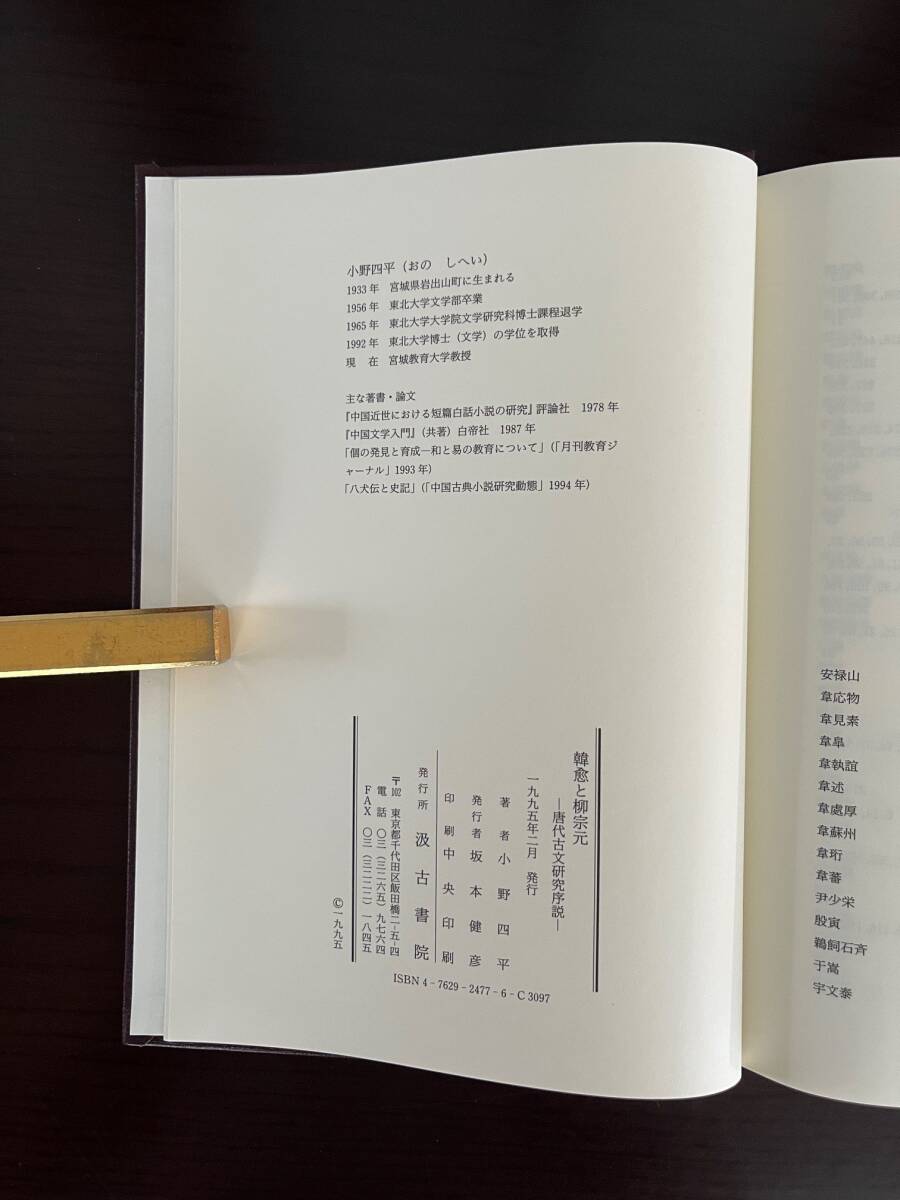 小野四平（おの　しへい）
1933年　宮城県岩出山町に生まれる
1956年　東北大学文学部卒業
1965年　東北大学大学院文学研究科博士課程退学
1992年　東北大学博士（文学）の学位を取得
現　在　宮城教育大学教授
主な著書・論文
『中国近世における短篇白話小説の研究』評論社　1978年
『中国文学入門』（共著）白帝社　1987年
「個の発見と育成―和と易の教育について」（「月刊教育ジ
ャーナル」1993年）
「八犬伝と史記」（「中国古典小説研究動態」1994年）
韓愈と柳宗元
―唐代古文研究序説―
一九九五年二月　発行
著者　小野四平
発行者　坂本健彦
印刷　中央印刷
発行所　汲古書院
〒102　東京都千代田区飯田橋二－五－四
電話　〇三（三二六五）九七六四
FAX　〇三（三二二二）一八四五
©一九九五
ISBN 4－7629－2477－6－C 3097
安禄山
韋応物
韋見素
韋皐
韋執誼
韋述
韋處厚
韋蘇州
韋珩
韋蕃
尹少栄
殷寅
鵜飼石斉
于嵩
宇文泰